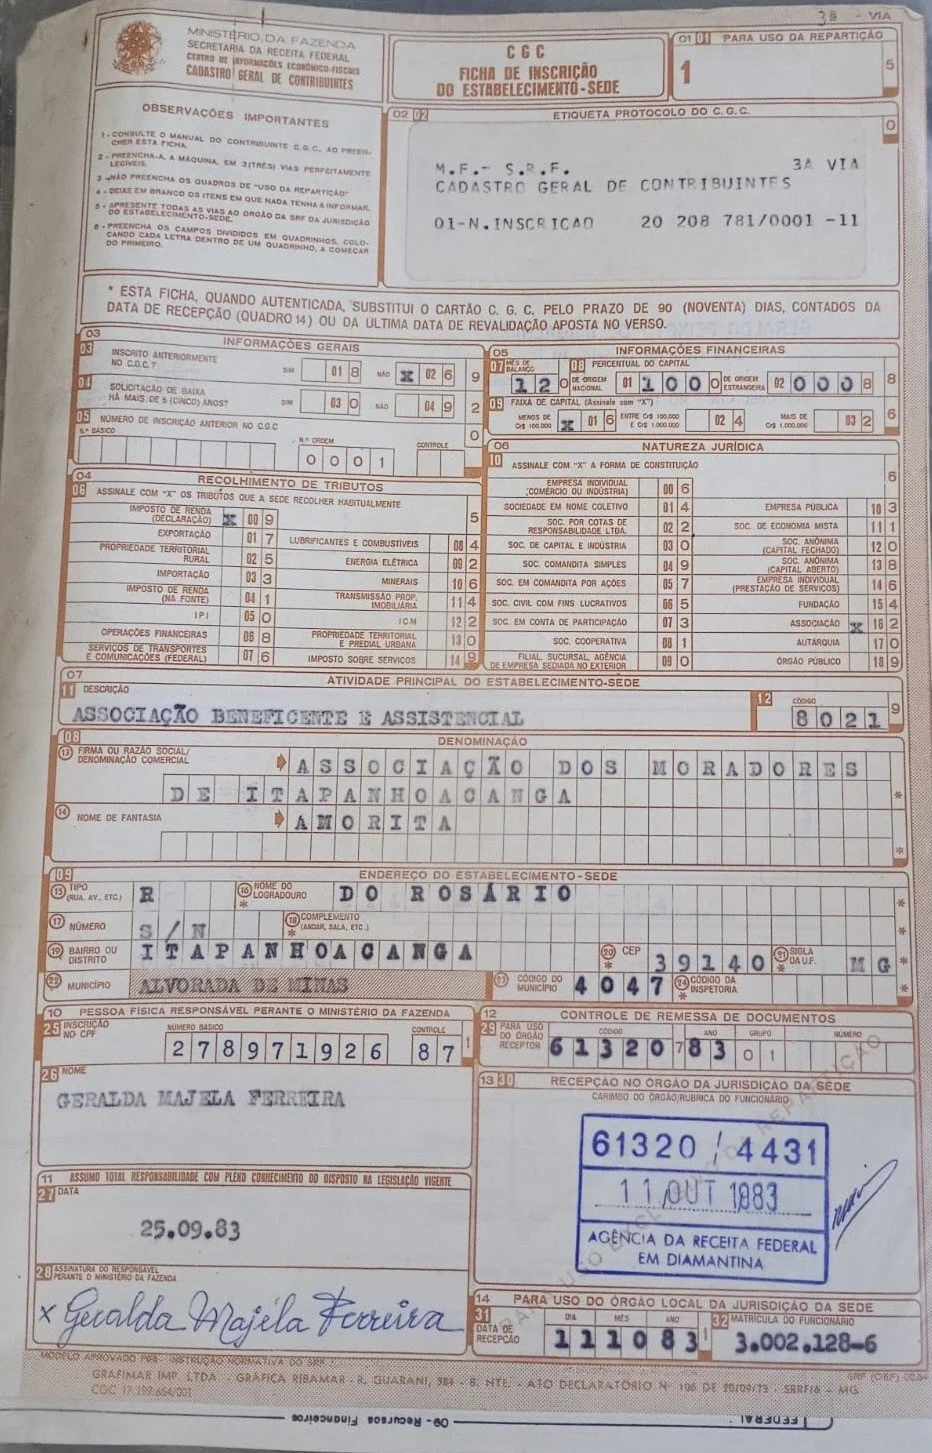 3ª - VIA
MINISTÉRIO DA FAZENDA
SECRETARIA DA RECEITA FEDERAL
CENTRO DE INFORMAÇÕES ECONÔMICO-FISCAIS
CADASTRO GERAL DE CONTRIBUINTES
CGC
FICHA DE INSCRIÇÃO
DO ESTABELECIMENTO-SEDE
01 01 PARA USO DA REPARTIÇÃO
1 5
OBSERVAÇÕES IMPORTANTES
1 - CONSULTE O MANUAL DO CONTRIBUINTE C.G.C. AO PREEN-
CHER ESTA FICHA.
2 - PREENCHA-A, A MÁQUINA, EM 3 (TRÊS) VIAS PERFEITAMENTE
LEGÍVEIS.
3 - NÃO PREENCHA OS QUADROS DE "USO DA REPARTIÇÃO"
4 - DEIXE EM BRANCO OS ITENS EM QUE NADA TENHA A INFORMAR.
5 - APRESENTE TODAS AS VIAS AO ORGÃO DA SRF DA JURISDIÇÃO
DO ESTABELECIMENTO-SEDE.
6 - PREENCHA OS CAMPOS DIVIDIDOS EM QUADRINHOS, COLO-
CANDO CADA LETRA DENTRO DE UM QUADRINHO, A COMEÇAR
DO PRIMEIRO.
02 02 ETIQUETA PROTOCOLO DO C.G.C. 0
M.F.- S.R.F. 3A VIA
CADASTRO GERAL DE CONTRIBUINTES
01-N.INSCRICAO 20 208 781/0001 -11
* ESTA FICHA, QUANDO AUTENTICADA, SUBSTITUI O CARTÃO C. G. C. PELO PRAZO DE 90 (NOVENTA) DIAS, CONTADOS DA
DATA DE RECEPÇÃO (QUADRO 14) OU DA ÚLTIMA DATA DE REVALIDAÇÃO APOSTA NO VERSO.
03 INFORMAÇÕES GERAIS
03 INSCRITO ANTERIORMENTE
NO C.G.C.? SIM 01 8 NÃO X 02 6 9
04 SOLICITAÇÃO DE BAIXA
HÁ MAIS DE 5 (CINCO) ANOS? SIM 03 0 NÃO 04 9 2
05 NÚMERO DE INSCRIÇÃO ANTERIOR NO CGC 0
N.º BÁSICO N.º ORDEM CONTROLE
0001
05 INFORMAÇÕES FINANCEIRAS
07 MÊS DE
BALANÇO 08 PERCENTUAL DO CAPITAL
12 0 DE ORIGEM
NACIONAL 01 100 0 DE ORIGEM
ESTRANGEIRA 02 000 8 8
09 FAIXA DE CAPITAL (Assinale com "X")
MENOS DE
Cr$ 100.000 X 01 6 ENTRE Cr$ 100.000
E Cr$ 1.000.000 02 4 MAIS DE
Cr$ 1.000.000 03 2 6
04 RECOLHIMENTO DE TRIBUTOS
06 ASSINALE COM "X" OS TRIBUTOS QUE A SEDE RECOLHER HABITUALMENTE 5
IMPOSTO DE RENDA
(DECLARAÇÃO) X 00 9
EXPORTAÇÃO 01 7
PROPRIEDADE TERRITORIAL
RURAL 02 5
IMPORTAÇÃO 03 3
IMPOSTO DE RENDA
(NA FONTE) 04 1
IPI 05 0
OPERAÇÕES FINANCEIRAS 06 8
SERVIÇOS DE TRANSPORTES
E COMUNICAÇÕES (FEDERAL) 07 6
LUBRIFICANTES E COMBUSTÍVEIS 08 4
ENERGIA ELÉTRICA 09 2
MINERAIS 10 6
TRANSMISSÃO PROP.
IMOBILIÁRIA 11 4
ICM 12 2
PROPRIEDADE TERRITORIAL
E PREDIAL URBANA 13 0
IMPOSTO SOBRE SERVIÇOS 14 9
06 NATUREZA JURÍDICA
10 ASSINALE COM "X" A FORMA DE CONSTITUIÇÃO 6
EMPRESA INDIVIDUAL
(COMÉRCIO OU INDÚSTRIA) 00 6
SOCIEDADE EM NOME COLETIVO 01 4
SOC. POR COTAS DE
RESPONSABILIDADE LTDA. 02 2
SOC. DE CAPITAL E INDÚSTRIA 03 0
SOC. COMANDITA SIMPLES 04 9
SOC. EM COMANDITA POR AÇÕES 05 7
SOC. CIVIL COM FINS LUCRATIVOS 06 5
SOC. EM CONTA DE PARTICIPAÇÃO 07 3
SOC. COOPERATIVA 08 1
FILIAL, SUCURSAL, AGÊNCIA
DE EMPRESA SEDIADA NO EXTERIOR 09 0
EMPRESA PÚBLICA 10 3
SOC. DE ECONOMIA MISTA 11 1
SOC. ANÔNIMA
(CAPITAL FECHADO) 12 0
SOC. ANÔNIMA
(CAPITAL ABERTO) 13 8
EMPRESA INDIVIDUAL
(PRESTAÇÃO DE SERVIÇOS) 14 6
FUNDAÇÃO 15 4
ASSOCIAÇÃO X 16 2
AUTARQUIA 17 0
ÓRGÃO PÚBLICO 18 9
07 ATIVIDADE PRINCIPAL DO ESTABELECIMENTO-SEDE
11 DESCRIÇÃO 12 CÓDIGO
ASSOCIAÇÃO BENEFICENTE E ASSISTENCIAL 8021 9
08 DENOMINAÇÃO
13 FIRMA OU RAZÃO SOCIAL/
DENOMINAÇÃO COMERCIAL ASSOCIAÇÃO DOS MORADORES
DE ITAPANHOACANGA *
14 NOME DE FANTASIA AMORITA
*
09 ENDEREÇO DO ESTABELECIMENTO-SEDE
15 TIPO
(RUA, AV., ETC.) R 16 NOME DO
LOGRADOURO * DO ROSÁRIO *
17 NÚMERO S/N 18 COMPLEMENTO
* (ANDAR, SALA, ETC.) *
19 BAIRRO OU
DISTRITO ITAPANHOACANGA 20 CEP * 39140 21 SIGLA
DA U.F. * MG *
22 MUNICÍPIO ALVORADA DE MINAS 23 CÓDIGO DO
MUNICÍPIO 4047 24 CÓDIGO DA
* INSPETORIA
10 PESSOA FÍSICA RESPONSÁVEL PERANTE O MINISTÉRIO DA FAZENDA
25 INSCRIÇÃO
NO CPF NÚMERO BÁSICO CONTROLE
278971926 87 1
26 NOME
GERALDA MAJELA FERREIRA
12 CONTROLE DE REMESSA DE DOCUMENTOS
29 PARA USO
DO ÓRGÃO
RECEPTOR CÓDIGO ANO GRUPO NÚMERO
61320 7 83 01
13 30 RECEPÇÃO NO ÓRGÃO DA JURISDIÇÃO DA SEDE
CARIMBO DO ÓRGÃO/RUBRICA DO FUNCIONÁRIO
61320 / 4431
11 OUT 1983
AGÊNCIA DA RECEITA FEDERAL
EM DIAMANTINA
11 ASSUMO TOTAL RESPONSABILIDADE COM PLENO CONHECIMENTO DO DISPOSTO NA LEGISLAÇÃO VIGENTE
27 DATA
25.09.83
28 ASSINATURA DO RESPONSÁVEL
PERANTE O MINISTÉRIO DA FAZENDA
x Geralda Majela Ferreira
14 PARA USO DO ÓRGÃO LOCAL DA JURISDIÇÃO DA SEDE
31 DATA DE
RECEPÇÃO DIA MÊS ANO
11 10 83 1
32 MATRÍCULA DO FUNCIONÁRIO
3.002.128-6
MODELO APROVADO POR INSTRUÇÃO NORMATIVA DO SRF
GRAFIMAR IMP. LTDA - GRÁFICA RIBAMAR - R. GUARANI, 984 - B. HTE. - ATO DECLARATÓRIO N.º 106 DE 20/09/73 - SRRF/6 - MG.
CGC 17.199.654/001
09 - Recursos Financeiros
FEDERAL